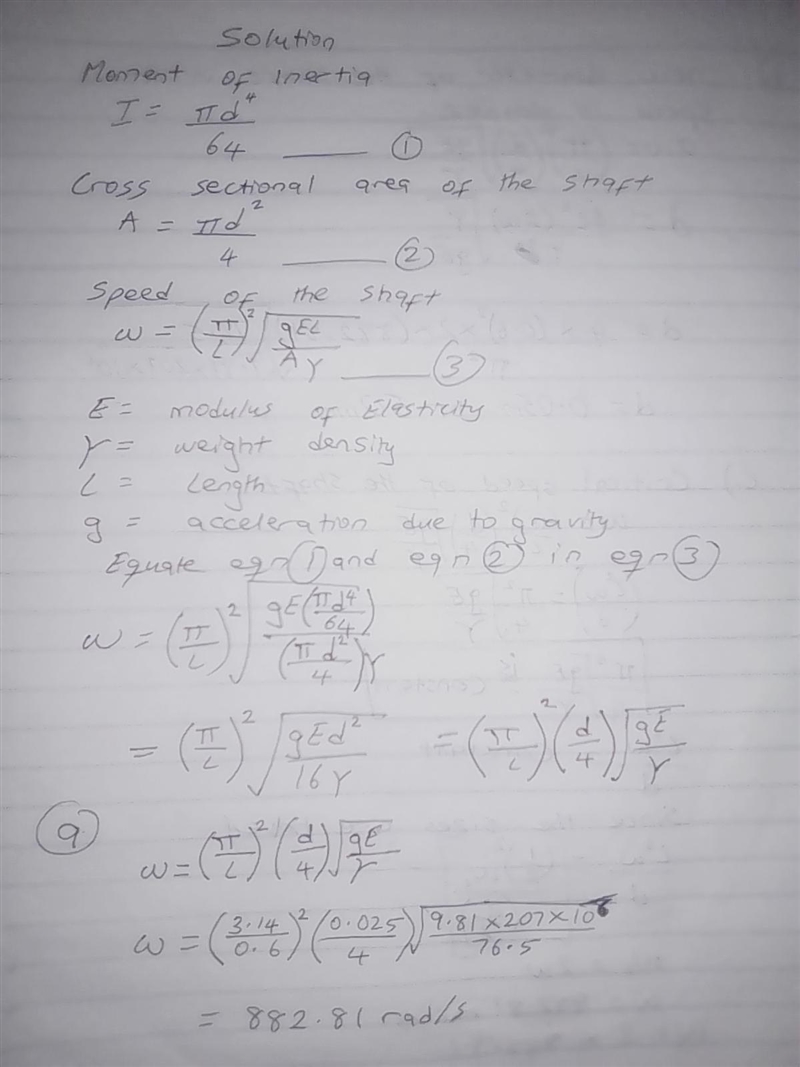 Solution
Moment of inertia
I = πd⁴/64 ——— ①
Cross sectional area of the shaft
A = πd²/4 ——— ②
Speed of the shaft
ω = (π/L)² √(gEL/Aγ) ——— ③
E = modulus of Elasticity
γ = weight density
L = Length
g = acceleration due to gravity
Equate eqn ① and eqn ② in eqn ③
ω = (π/L)² √(gE(πd⁴/64)/(πd²/4)γ)
= (π/L)² √(gEd²/16γ) = (π/L)² (d/4) √(gE/γ)
ⓐ
ω = (π/L)² (d/4) √(gE/γ)
ω = (3.14/0.6)² (0.025/4) √(9.81 × 207 × 10⁶/76.5)
= 882.81 rad/s